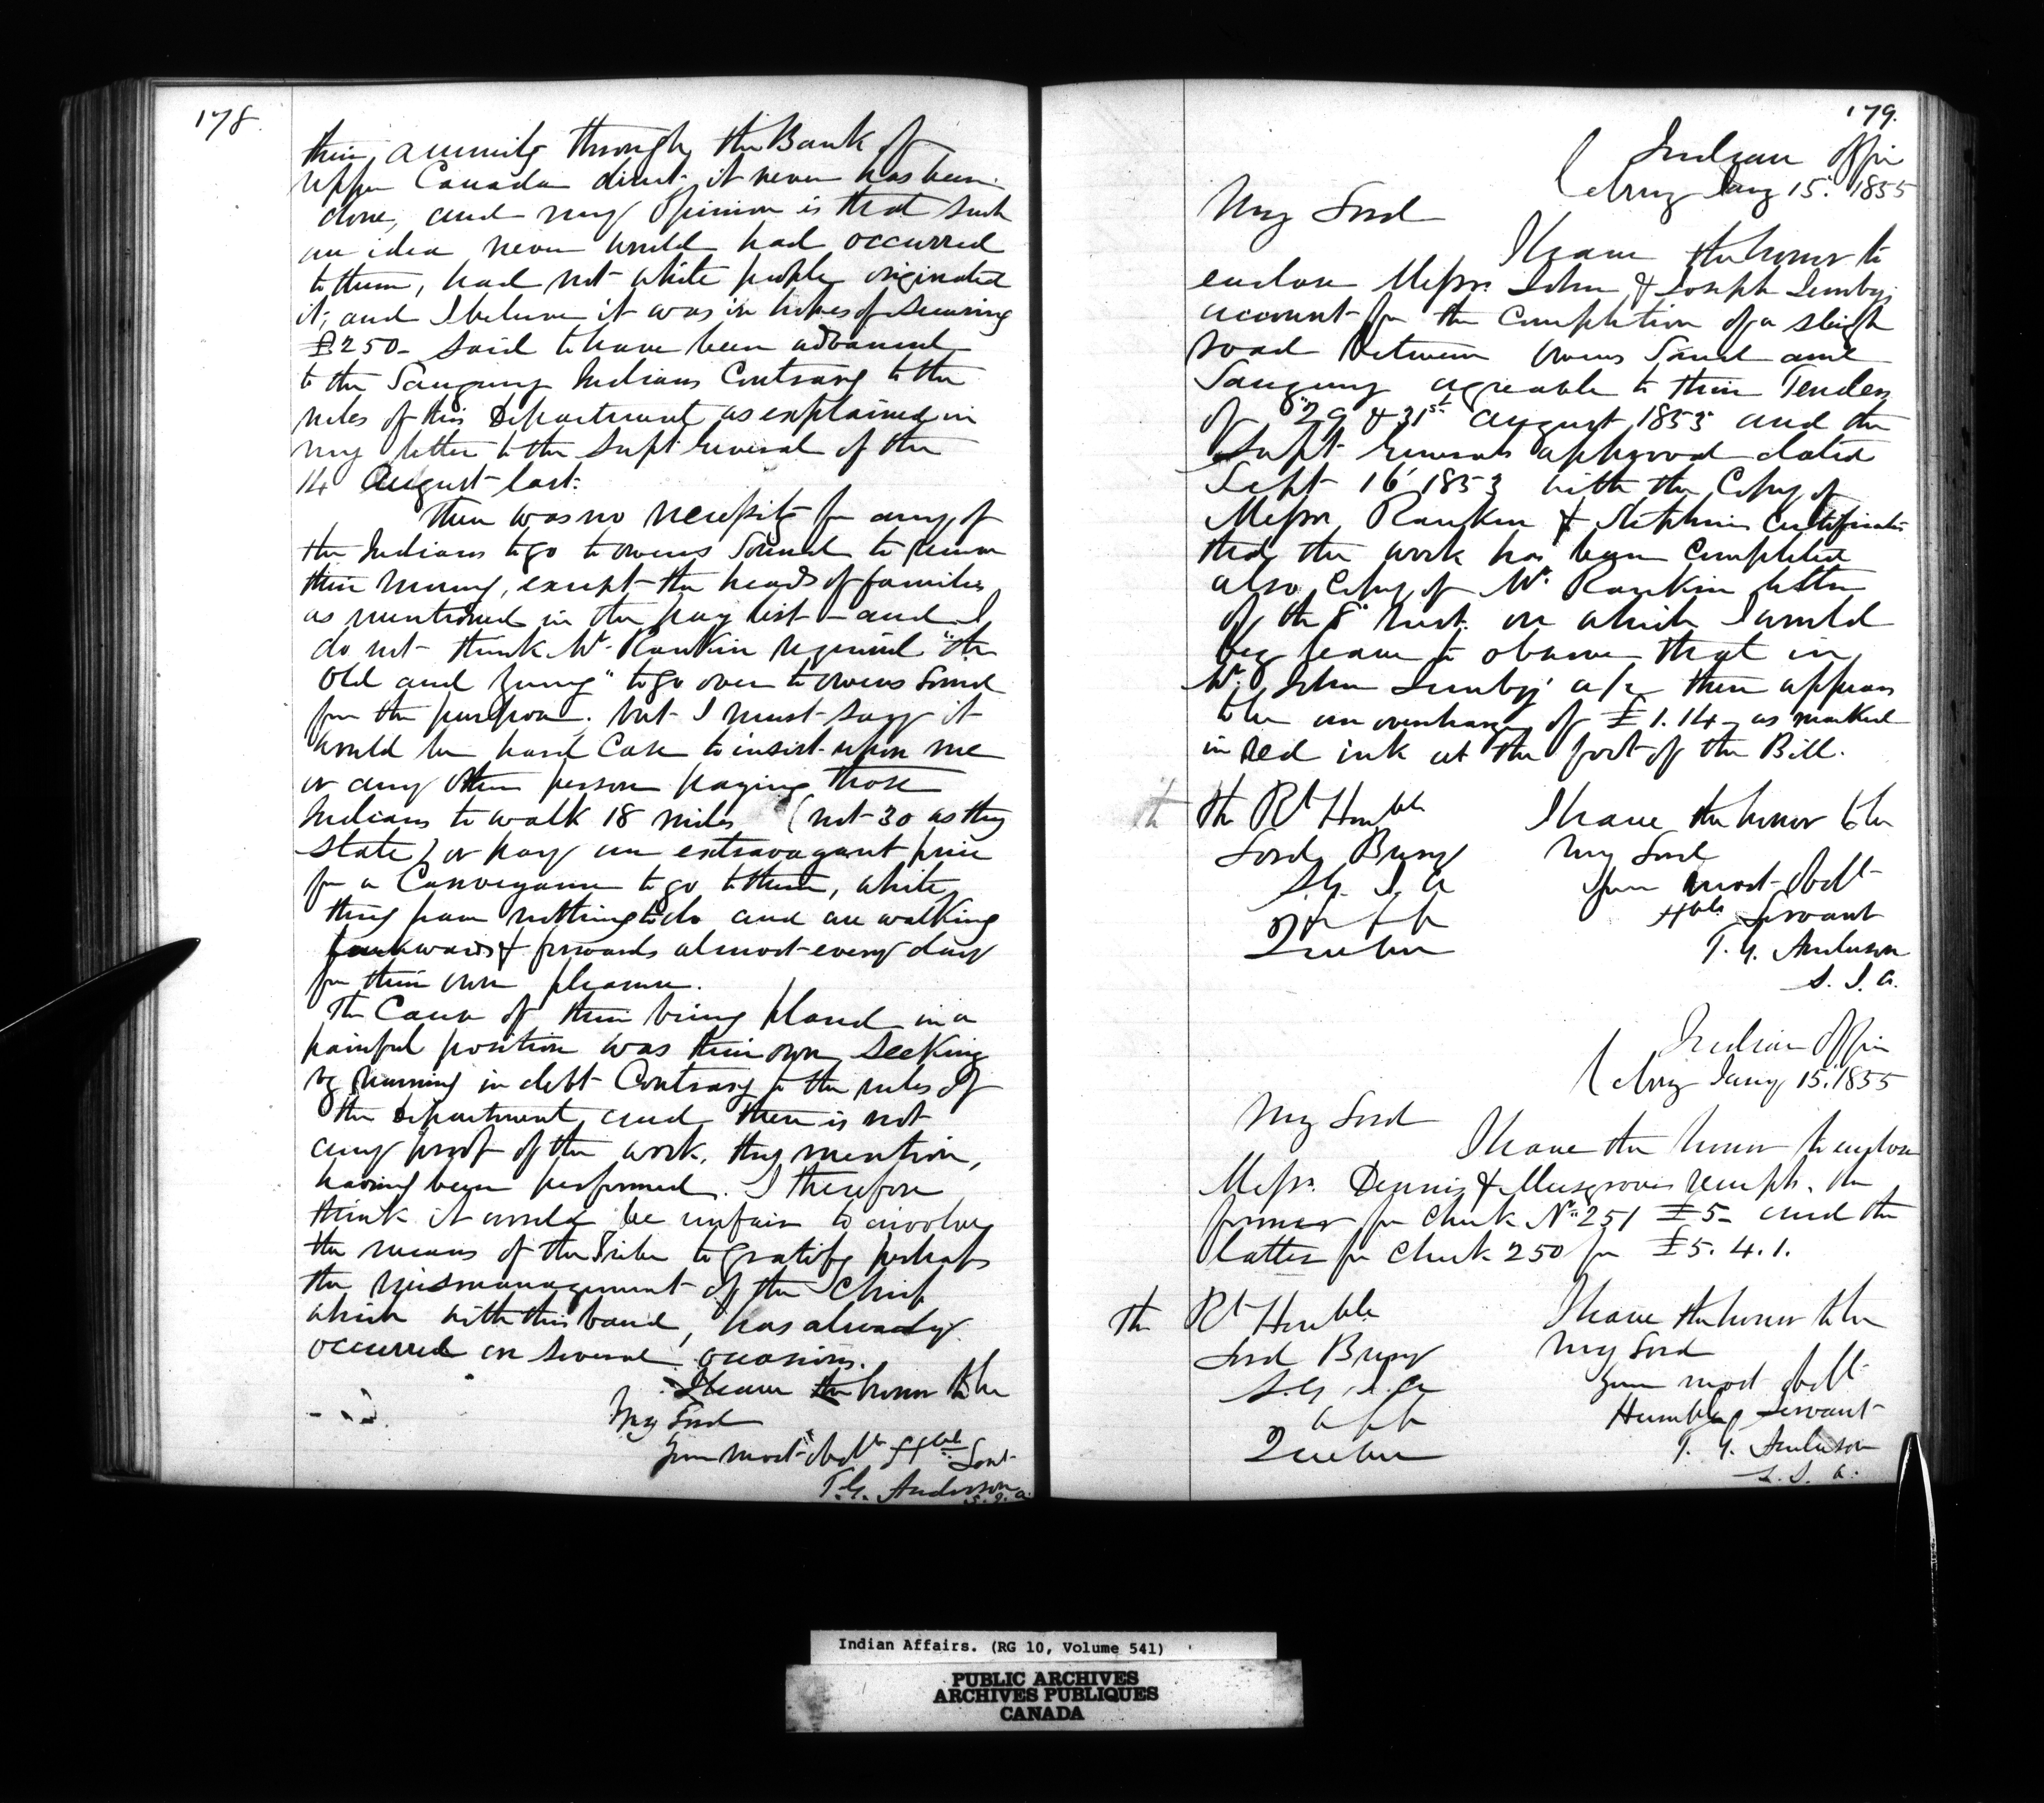 178.
their annuity through the Bank of
Upper Canada direct; it never has been
done, and my opinion is that such
an idea never would had occurred
to them, had not white people originated
it; and I believe it was in hopes of securing
£250– said to have been advanced
to the Saugeeng Indians Contrary to the
rules of this Department as explained in
my letter to the Supt General of the
14 August last.
There was no necessity for any of
the Indians to go to Owens Sound to receive
their money, except the heads of families
as mentioned in the pay list – and I
do not think Mr. Rankin required "the
old and young" to go over to Owens Sound
for the purpose. but I must say it
would be hard case to insist upon me
or any other person paying those
Indians to walk 18 miles (not 30 as they
state) or pay an extravagant price
for a Conveyance to go to them, while
they have nothing to do and are walking
backwards & forwards almost every day
for their own pleasure.
The Cause of their being placed in a
painful position was their own seeking
by running in debt Contrary to the rules of
the Department and there is not
any proof of the work, they mention,
having been performed. I therefore
think it would be unfair to involve
the means of the Tribe to gratify perhaps
the mismanagement of the Chief
which with this band, has already
occurred on several occasions.
I have the honor to be
My Lord
Your most obdt Hble Servt
T.G. Anderson
S.I.A.
179.
Indian Office
Cobrg Jany 15. 1855
My Lord
I have the honor to
enclose Messrs. John & Joseph
account for the Completion of a sleigh
road between Owens Sound and
Saugeeng agreeable to their Tenders
of 29 & 31st August 1853 and the
Supt Generals approval dated
Sept 16 1853 with the Copy of
Messrs Rankin & Stephens Certificate
that the work has been Completed
also Copy of Mr. Rankin letter
of the 8 Inst. on which I would
beg leave to observe that in
Mr. John a/c there appears
to be an overcharge of £1.14– as marked
in red ink at the foot of the Bill.
The Rt Honble
Lord Bury
S.G.I.A
Quebec
I have the honor to be
My Lord
Your most obdt
Hble Servant
T.G. Anderson
S.I.A.
Indian Office
Cobrg Jany 15. 1855
My Lord
I have the honor to enclose
Messrs. Dennis & Musgroves receipts. the
former for Check No. 251 £5– and the
latter for Check 250 for £5.4.1.
The Rt Honble
Lord Bury
S.G.I.A
Quebec
I have the honor to be
My Lord
Your most obdt
Humble Servant
T.G. Anderson
S.I.A.
Indian Affairs. (RG 10, Volume 541)
PUBLIC ARCHIVES
ARCHIVES PUBLIQUES
CANADA